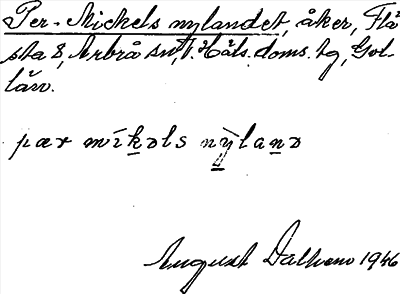 Per-Mickels nylandet, åker, Flå
sta 8, Arbrå sn, V. Häls. doms. tg, Gvl-
län.
pær mìkəls nỳland
August Dalhem 1946